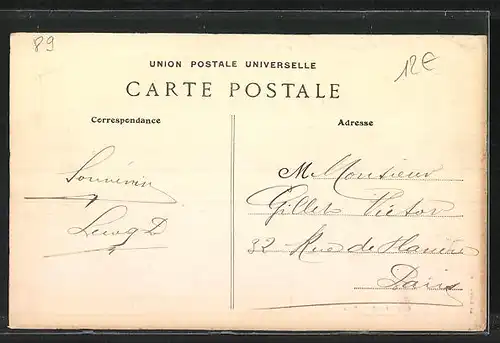 89
12€
UNION POSTALE UNIVERSELLE
CARTE POSTALE
Correspondance
Adresse
Souvenir
M Monsieur
Gillet Victor
32 Rue de
Paris